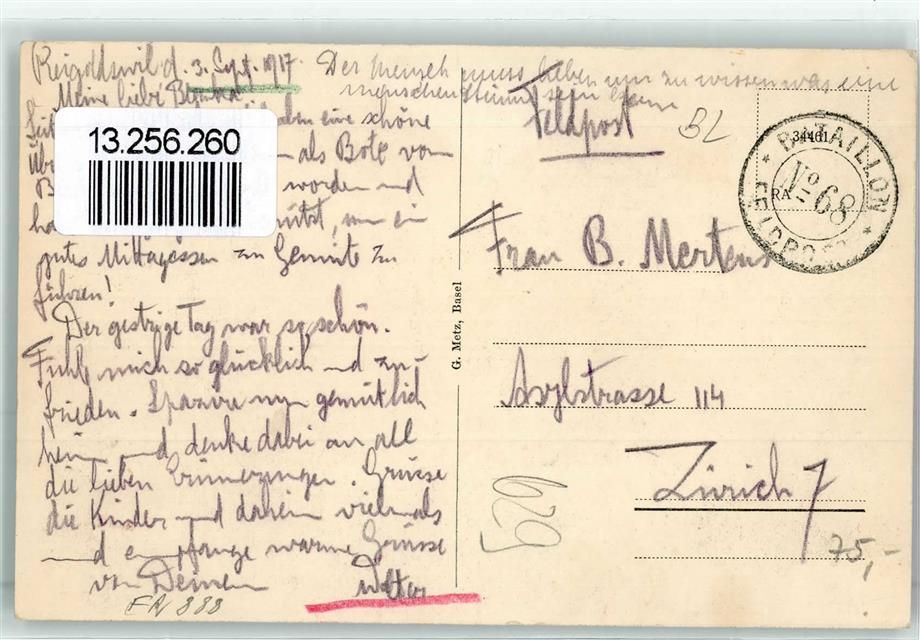 Reigoldswil d. 3. Sept. 1917. Der Mensch muss leben um zu wissen was eine
Meine liebe
menschenstimme sein kann
Seit haben eine schöne
13.256.260
als Bote vom
worden und
um ein
gutes Mittagessen zu Gemüte zu
führen!
Der gestrige Tag war so schön.
Fühle mich so glücklich und zu-
frieden. Spaziere nun gemütlich
heim und denke dabei an all
die lieben Erinnerungen. Grüsse
die Kinder und daheim vielmals
und empfange warme Grüsse
von Deinem Walter
FN 888
G. Metz, Basel
Feldpost
BL
34461
RA
BATAILLON
No 68
FELDPOST
Frau B. Mertens
Asylstrasse 114
Zürich 7
629
75,-